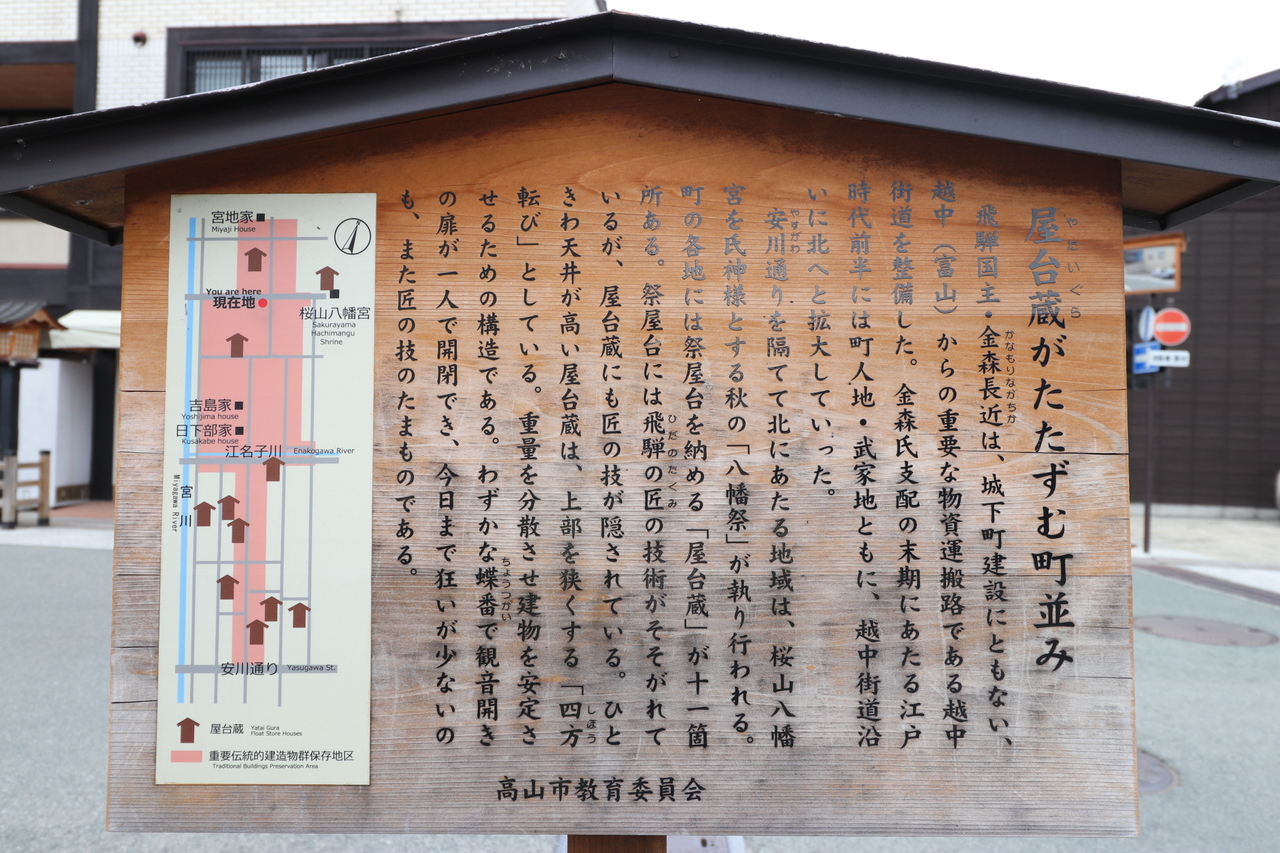 屋台蔵がたたずむ町並み
やたいぐら
飛騨国主・金森長近は、城下町建設にともない、
かなもりながちか
越中（富山）からの重要な物資運搬路である越中
街道を整備した。金森氏支配の末期にあたる江戸
時代前半には町人地・武家地ともに、越中街道沿
いに北へと拡大していった。
安川通りを隔てて北にあたる地域は、桜山八幡
やすがわ
宮を氏神様とする秋の「八幡祭」が執り行われる。
町の各地には祭屋台を納める「屋台蔵」が十一箇
所ある。祭屋台には飛騨の匠の技術がそそがれて
ひだのたくみ
いるが、屋台蔵にも匠の技が隠されている。ひと
きわ天井が高い屋台蔵は、上部を狭くする「四方
しほう
転び」としている。重量を分散させ建物を安定さ
せるための構造である。わずかな蝶番で観音開き
ちょうつがい
の扉が一人で開閉でき、今日まで狂いが少ないの
も、また匠の技のたまものである。
高山市教育委員会
宮地家
Miyaji House
You are here
現在地
桜山八幡宮
Sakurayama
Hachimangu
Shrine
吉島家
Yoshijima house
日下部家
Kusakabe house
江名子川 Enakogawa River
宮川
Miyagawa River
安川通り Yasugawa St.
屋台蔵
Yatai Gura
Float Store Houses
重要伝統的建造物群保存地区
Traditional Buildings Preservation Area